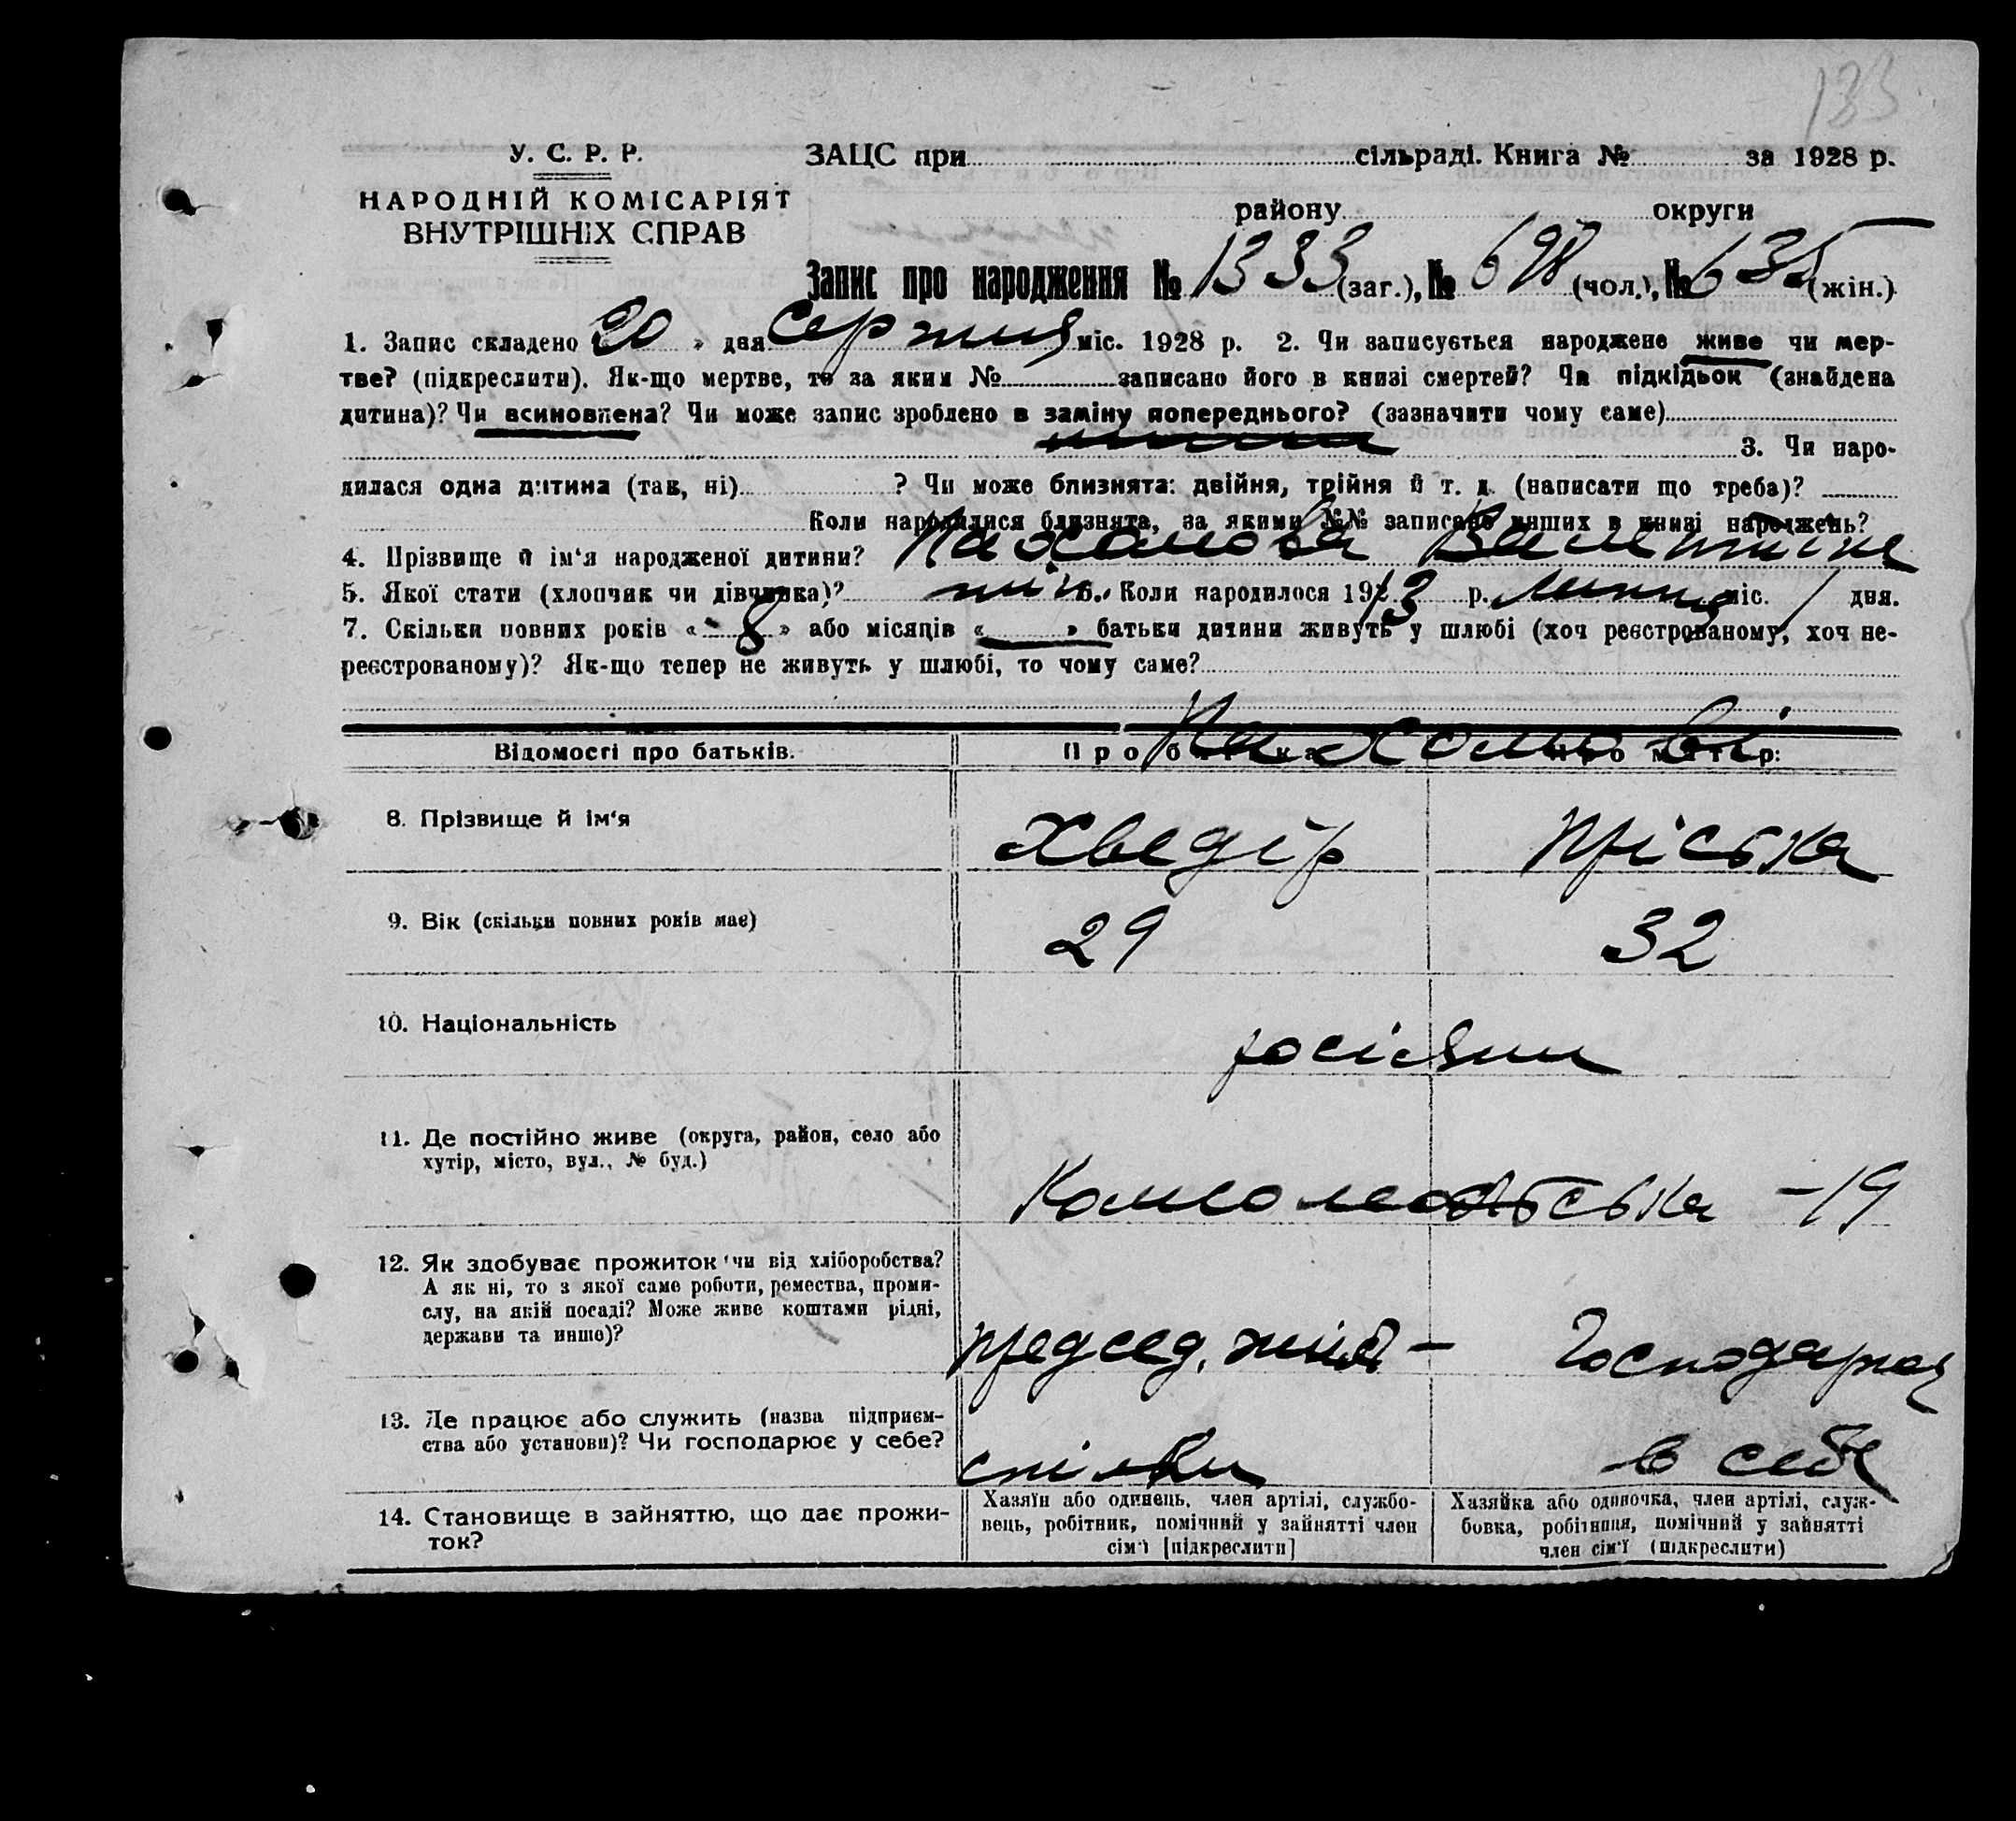 133
У. С. Р. Р.
НАРОДНІЙ КОМІСАРІЯТ
ВНУТРІШНІХ СПРАВ
ЗАЦС при сільраді. Книга № за 1928 р.
району округи
Запис про народження № 1333 (заг.), № 698 (чол.), № 635 (жін.)
1. Запис складено 20 » дня Серпня міс. 1928 р. 2. Чи записується народжене живе чи мер-
тве? (підкреслити). Як-що мертве, то за яким № записано його в книзі смертей? Чи підкідьок (знайдена
дитина)? Чи всиновлена? Чи може запис зроблено в заміну попереднього? (зазначити чому саме)
3. Чи наро-
дилася одна дитина (так, ні) ? Чи може близнята: двійня, трійня й т. д. (написати що треба)?
Коли народилися близнята, за якими №№ записано инших в книзі народжень?
4. Прізвище й ім‘я народженої дитини? Пахомова Валентина
5. Якої стати (хлопчик чи дівчинка)? 6. Коли народилося 1923 р. Липня міс. 1 дня.
7. Скільки повних років « 8 » або місяців « » батьки дитини живуть у шлюбі (хоч реєстрованому, хоч не-
реєстрованому)? Як-що тепер не живуть у шлюбі, то чому саме?
Відомості про батьків. Про батька Про матір:
Пахомові
8. Прізвище й ім‘я Хведір Пріська
9. Вік (скільки повних років має) 29 32
10. Національність росіяни
11. Де постійно живе (округа, район, село або
хутір, місто, вул., № буд.) Комсомольська – 19
12. Як здобуває прожиток чи від хліборобства?
А як ні, то з якої саме роботи, ремества, проми-
слу, на якій посаді? Може живе коштами рідні,
держави та инше)? председ. – Господарює
13. Де працює або служить (назва підприєм-
ства або установи)? Чи господарює у себе? спілки в себе
14. Становище в зайняттю, що дає прожи-
ток?
Хазяїн або одинець, член артілі, службо-
вець, робітник, помічний у зайнятті член
сім‘ї [підкреслити]
Хазяйка або одиночка, член артілі, служ-
бовка, робітниця, помічний у зайнятті
член сім‘ї (підкреслити)